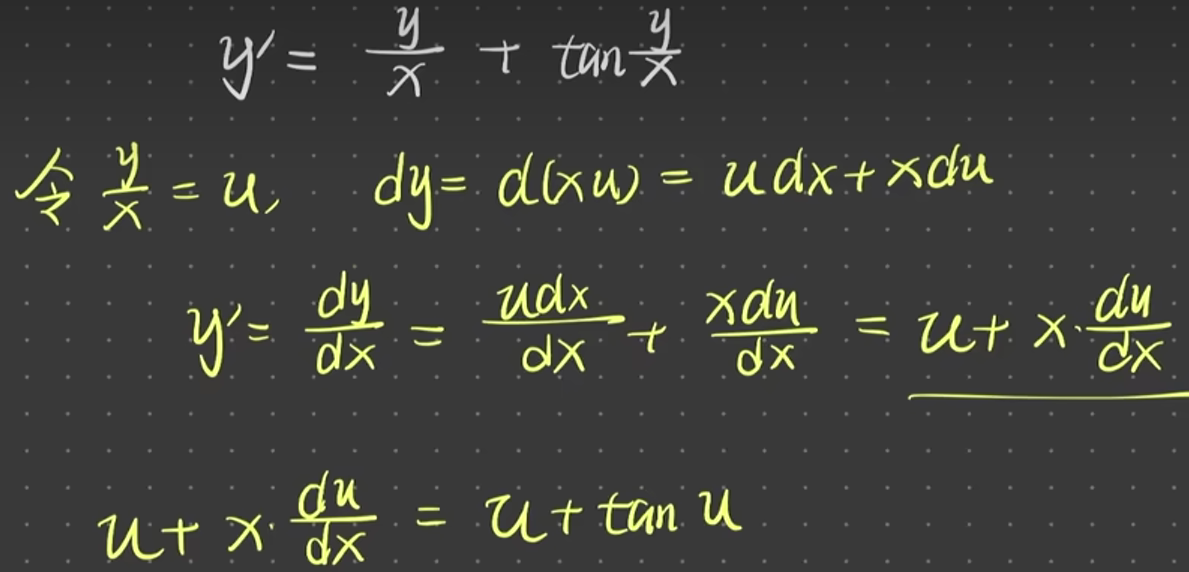 y' = y/x + tan y/x
令 y/x = u, dy = d(xu) = udx + xdu
y' = dy/dx = udx/dx + xdu/dx = u + x·du/dx
u + x·du/dx = u + tan u